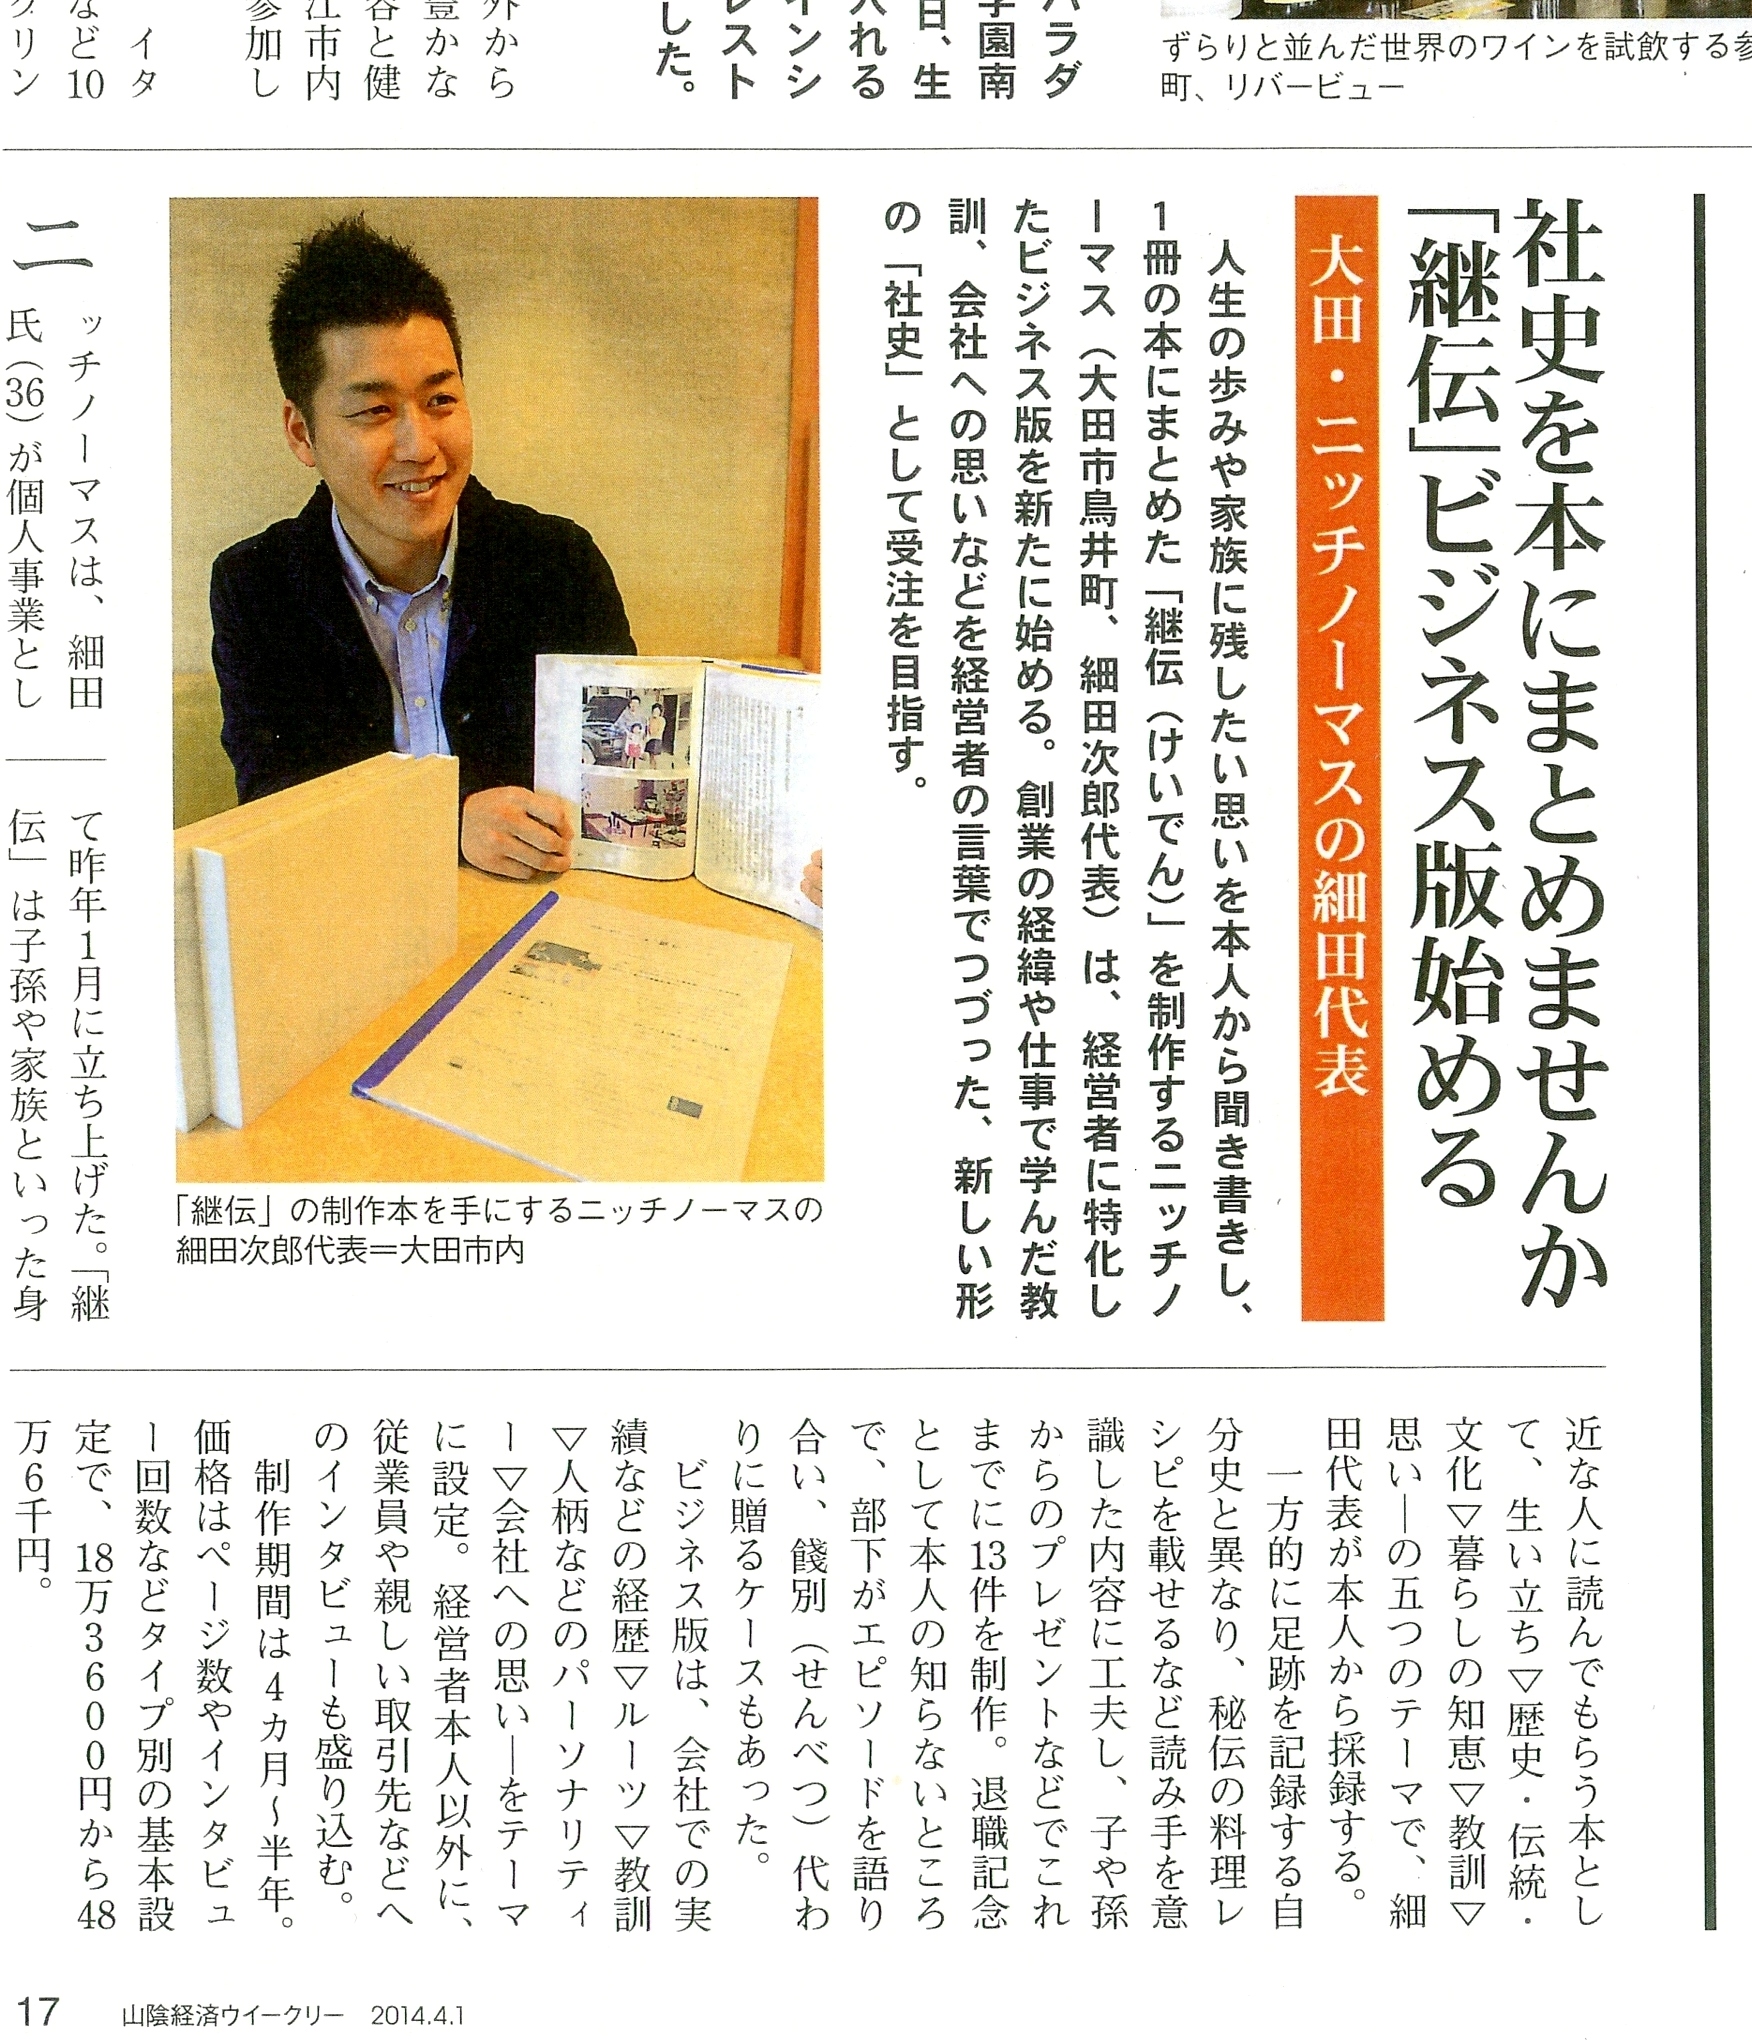 パラダ
学園南
日、生
入れる
インシ
レスト
した。
外から
豊かな
容と健
江市内
参加し
イタ
など10
クリン
ずらりと並んだ世界のワインを試飲する参
町、リバービュー
社史を本にまとめませんか
「継伝」ビジネス版始める
大田・ニッチノーマスの細田代表
人生の歩みや家族に残したい思いを本人から聞き書きし、
1冊の本にまとめた「継伝（けいでん）」を制作するニッチノ
ーマス（大田市鳥井町、細田次郎代表）は、経営者に特化し
たビジネス版を新たに始める。創業の経緯や仕事で学んだ教
訓、会社への思いなどを経営者の言葉でつづった、新しい形
の「社史」として受注を目指す。
「継伝」の制作本を手にするニッチノーマスの
細田次郎代表＝大田市内
ニッチノーマスは、細田
氏（36）が個人事業とし
て昨年1月に立ち上げた。「継
伝」は子孫や家族といった身
近な人に読んでもらう本とし
て、生い立ち▽歴史・伝統・
文化▽暮らしの知恵▽教訓▽
思い―の五つのテーマで、細
田代表が本人から採録する。
一方的に足跡を記録する自
分史と異なり、秘伝の料理レ
シピを載せるなど読み手を意
識した内容に工夫し、子や孫
からのプレゼントなどでこれ
までに13件を制作。退職記念
として本人の知らないところ
で、部下がエピソードを語り
合い、餞別（せんべつ）代わ
りに贈るケースもあった。
ビジネス版は、会社での実
績などの経歴▽ルーツ▽教訓
▽人柄などのパーソナリティ
ー▽会社への思い―をテーマ
に設定。経営者本人以外に、
従業員や親しい取引先などへ
のインタビューも盛り込む。
制作期間は4カ月～半年。
価格はページ数やインタビュ
ー回数などタイプ別の基本設
定で、18万3600円から48
万6千円。
17 山陰経済ウイークリー 2014.4.1